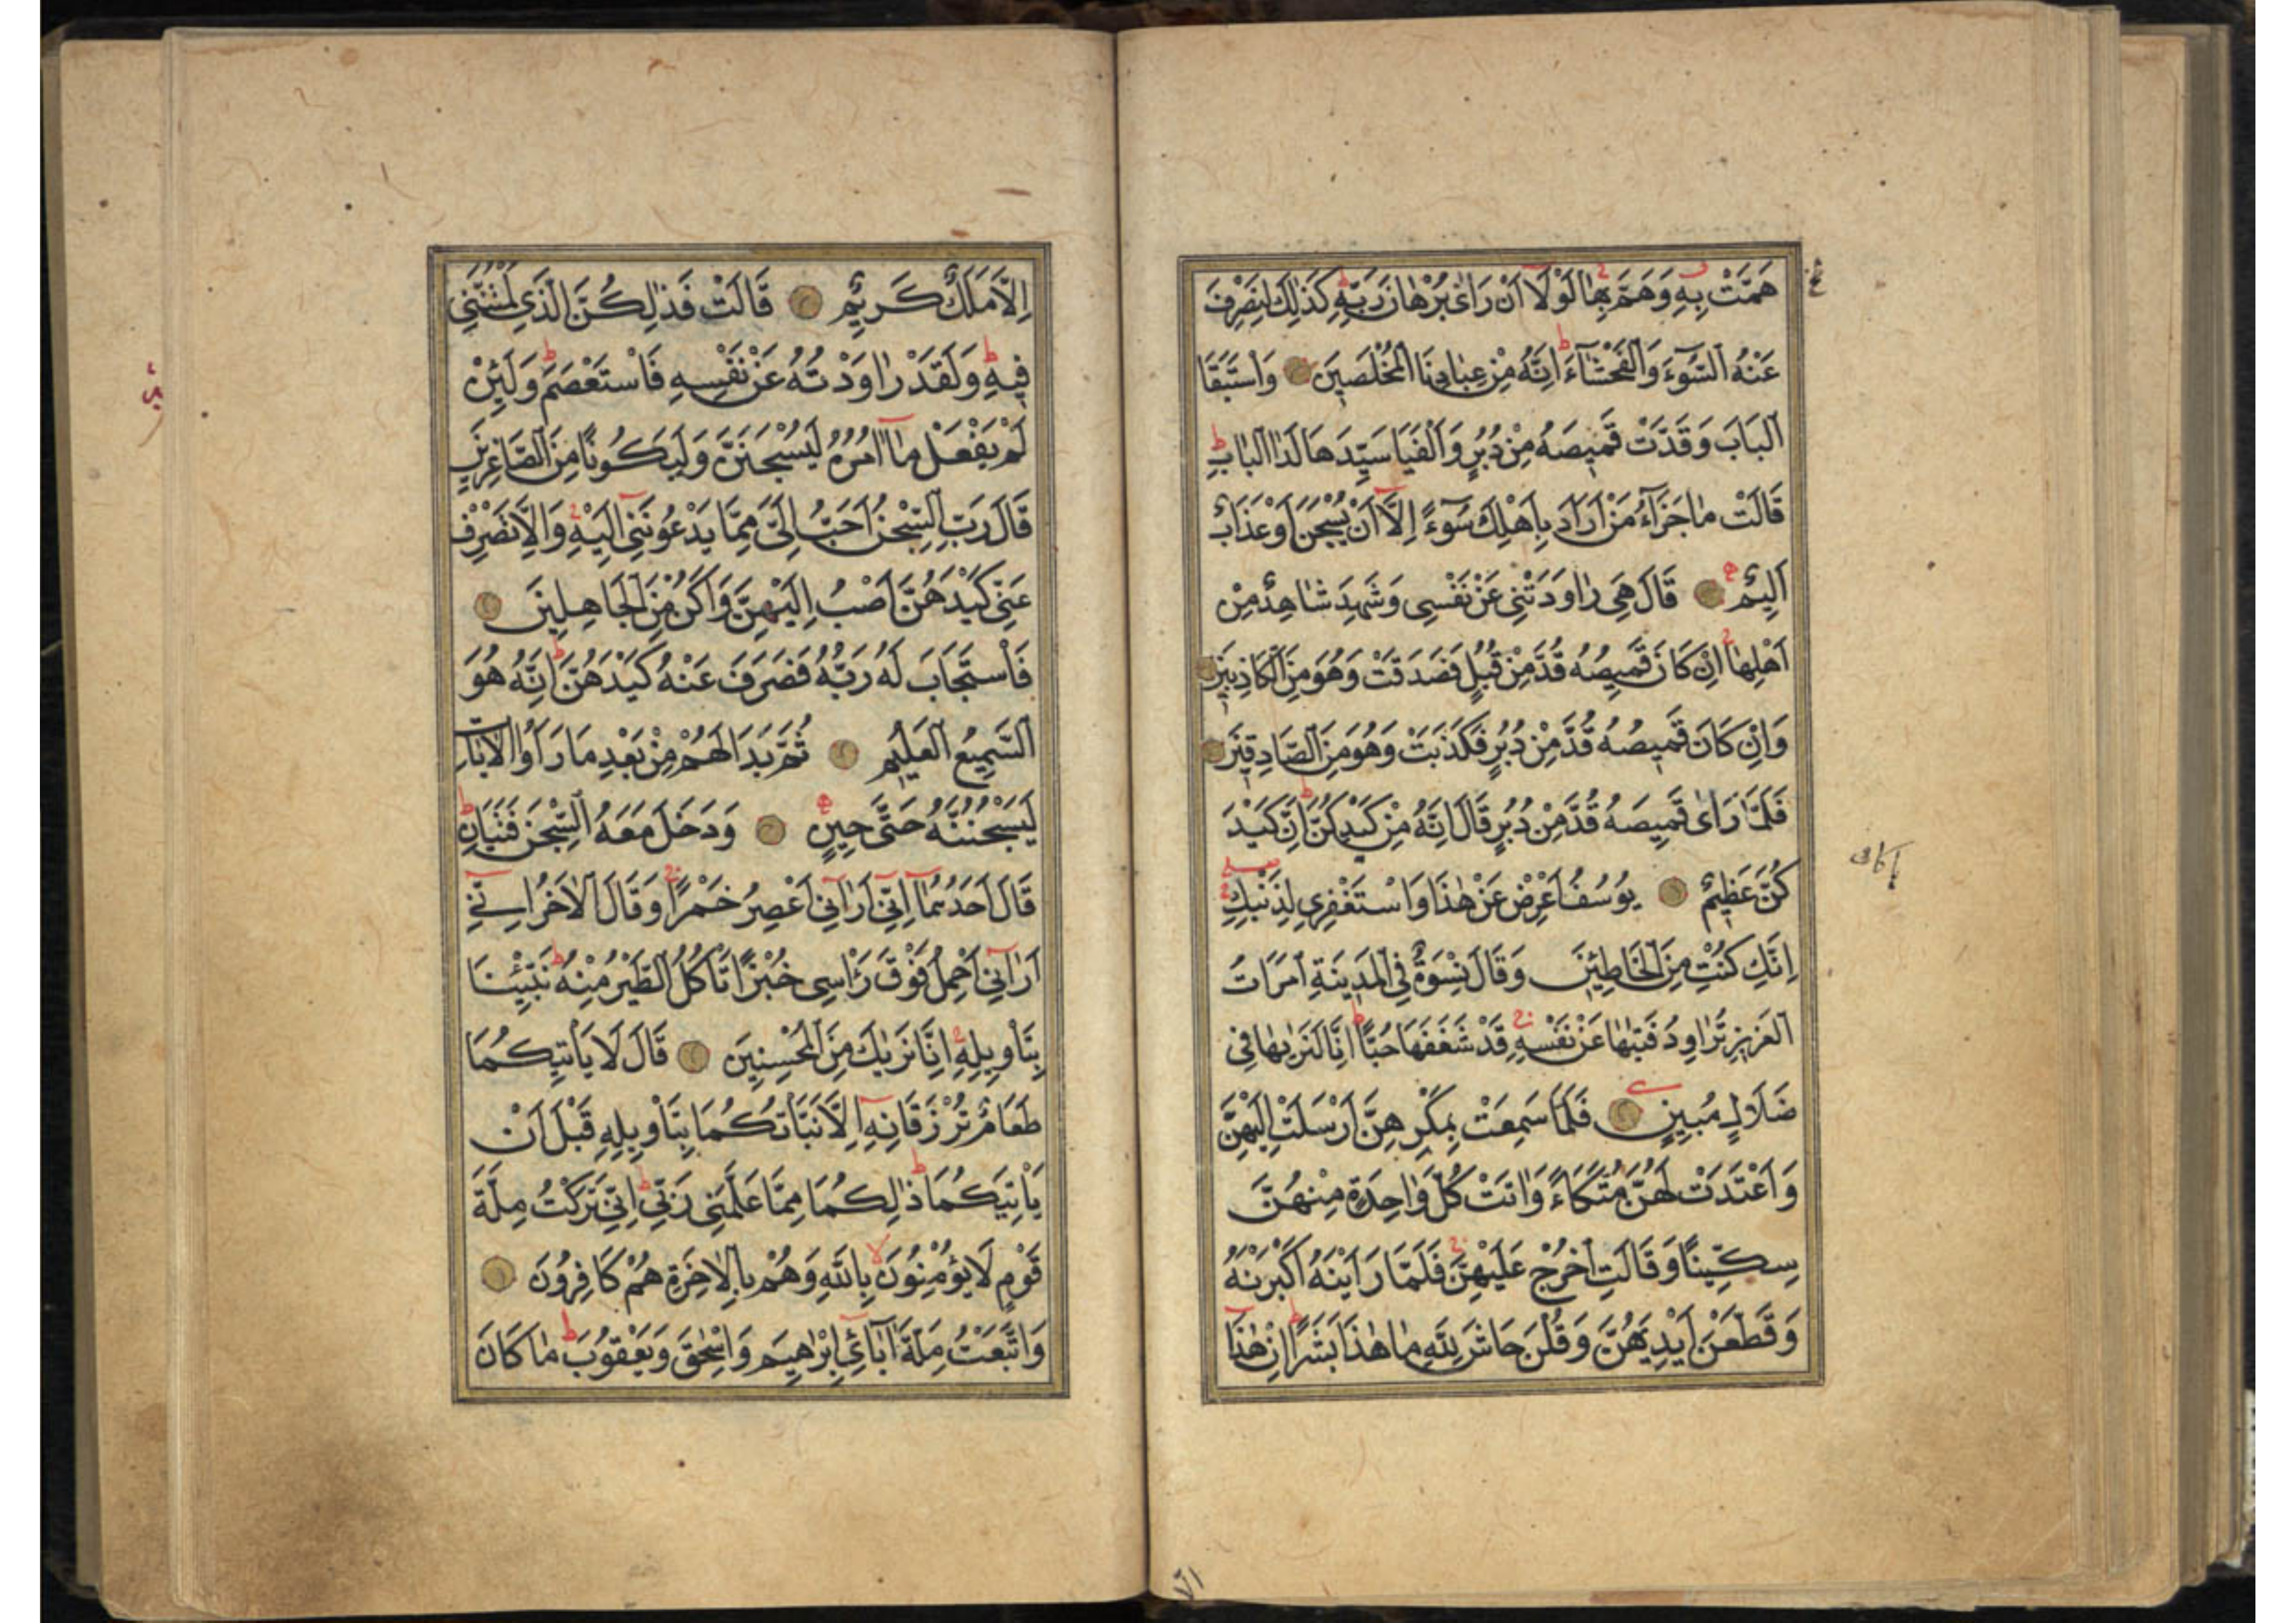 هَمَّتْ بِهِ وَهَمَّ بِهَا لَوْلَا اَنْ رَاٰى بُرْهَانَ رَبِّهِ كَذٰلِكَ لِنَصْرِفَ
عَنْهُ السُّوٓءَ وَالْفَحْشَآءَ اِنَّهُ مِنْ عِبَادِنَا الْمُخْلَصِينَ وَاسْتَبَقَا
الْبَابَ وَقَدَّتْ قَمِيصَهُ مِنْ دُبُرٍ وَاَلْفَيَا سَيِّدَهَا لَدَا الْبَابِ
قَالَتْ مَا جَزَآءُ مَنْ اَرَادَ بِاَهْلِكَ سُوٓءً اِلَّا اَنْ يُسْجَنَ اَوْ عَذَابٌ
اَلِيمٌ قَالَ هِيَ رَاوَدَتْنِي عَنْ نَفْسِي وَشَهِدَ شَاهِدٌ مِنْ
اَهْلِهَا اِنْ كَانَ قَمِيصُهُ قُدَّ مِنْ قُبُلٍ فَصَدَقَتْ وَهُوَ مِنَ الْكَاذِبِينَ
وَاِنْ كَانَ قَمِيصُهُ قُدَّ مِنْ دُبُرٍ فَكَذَبَتْ وَهُوَ مِنَ الصَّادِقِينَ
فَلَمَّا رَاٰى قَمِيصَهُ قُدَّ مِنْ دُبُرٍ قَالَ اِنَّهُ مِنْ كَيْدِكُنَّ اِنَّ كَيْدَ
كُنَّ عَظِيمٌ يُوسُفُ اَعْرِضْ عَنْ هٰذَا وَاسْتَغْفِرِي لِذَنْبِكِ
اِنَّكِ كُنْتِ مِنَ الْخَاطِئِينَ وَقَالَ نِسْوَةٌ فِي الْمَدِينَةِ امْرَاَتُ
الْعَزِيزِ تُرَاوِدُ فَتٰيهَا عَنْ نَفْسِهِ قَدْ شَغَفَهَا حُبًّا اِنَّا لَنَرٰيهَا فِي
ضَلَالٍ مُبِينٍ فَلَمَّا سَمِعَتْ بِمَكْرِهِنَّ اَرْسَلَتْ اِلَيْهِنَّ
وَاَعْتَدَتْ لَهُنَّ مُتَّكَاءً وَاٰتَتْ كُلَّ وَاحِدَةٍ مِنْهُنَّ
سِكِّينًا وَقَالَتِ اخْرُجْ عَلَيْهِنَّ فَلَمَّا رَاَيْنَهُ اَكْبَرْنَهُ
وَقَطَّعْنَ اَيْدِيَهُنَّ وَقُلْنَ حَاشَ لِلّٰهِ مَا هٰذَا بَشَرًا اِنْ هٰذَا
اِلَّا مَلَكٌ كَرِيمٌ قَالَتْ فَذٰلِكُنَّ الَّذِي لُمْتُنَّنِي
فِيهِ وَلَقَدْ رَاوَدْتُهُ عَنْ نَفْسِهِ فَاسْتَعْصَمَ وَلَئِنْ
لَمْ يَفْعَلْ مَا اٰمُرُهُ لَيُسْجَنَنَّ وَلَيَكُونًا مِنَ الصَّاغِرِينَ
قَالَ رَبِّ السِّجْنُ اَحَبُّ اِلَيَّ مِمَّا يَدْعُونَنِي اِلَيْهِ وَاِلَّا تَصْرِفْ
عَنِّي كَيْدَهُنَّ اَصْبُ اِلَيْهِنَّ وَاَكُنْ مِنَ الْجَاهِلِينَ
فَاسْتَجَابَ لَهُ رَبُّهُ فَصَرَفَ عَنْهُ كَيْدَهُنَّ اِنَّهُ هُوَ
السَّمِيعُ الْعَلِيمُ ثُمَّ بَدَا لَهُمْ مِنْ بَعْدِ مَا رَاَوُا الْاٰيَاتِ
لَيَسْجُنُنَّهُ حَتَّى حِينٍ وَدَخَلَ مَعَهُ السِّجْنَ فَتَيَانِ
قَالَ اَحَدُهُمَا اِنِّي اَرٰانِي اَعْصِرُ خَمْرًا وَقَالَ الْاٰخَرُ اِنِّي
اَرٰانِي اَحْمِلُ فَوْقَ رَاْسِي خُبْزًا تَاْكُلُ الطَّيْرُ مِنْهُ نَبِّئْنَا
بِتَاْوِيلِهِ اِنَّا نَرٰيكَ مِنَ الْمُحْسِنِينَ قَالَ لَا يَاْتِيكُمَا
طَعَامٌ تُرْزَقَانِهِ اِلَّا نَبَّاْتُكُمَا بِتَاْوِيلِهِ قَبْلَ اَنْ
يَاْتِيَكُمَا ذٰلِكُمَا مِمَّا عَلَّمَنِي رَبِّي اِنِّي تَرَكْتُ مِلَّةَ
قَوْمٍ لَا يُؤْمِنُونَ بِاللّٰهِ وَهُمْ بِالْاٰخِرَةِ هُمْ كَافِرُونَ
وَاتَّبَعْتُ مِلَّةَ اٰبَائِي اِبْرٰهِيمَ وَاِسْحٰقَ وَيَعْقُوبَ مَا كَانَ